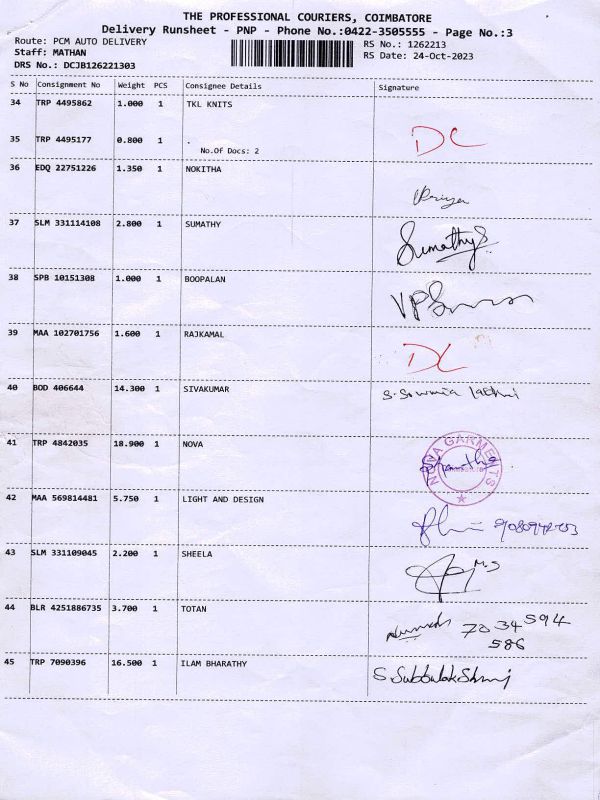 THE PROFESSIONAL COURIERS, COIMBATORE
Delivery Runsheet - PNP - Phone No.:0422-3505555 - Page No.:3
Route: PCM AUTO DELIVERY RS No.: 1262213
Staff: MATHAN RS Date: 24-Oct-2023
DRS No.: DCJB126221303
S No Consignment No Weight PCS Consignee Details Signature
34 TRP 4495862 1.000 1 TKL KNITS
35 TRP 4495177 0.800 1 .
No.Of Docs: 2 DC
36 EDQ 22751226 1.350 1 NOKITHA
Priya
37 SLM 331114108 2.800 1 SUMATHY
Sumathy S
38 SPB 10151308 1.000 1 BOOPALAN
39 MAA 102701756 1.600 1 RAJKAMAL
DC
40 BOD 406644 14.300 1 SIVAKUMAR
41 TRP 4842035 18.900 1 NOVA
NOVA GARMENTS
42 MAA 569814481 5.750 1 LIGHT AND DESIGN
43 SLM 331109045 2.200 1 SHEELA
44 BLR 4251886735 3.700 1 TOTAN
7034594
586
45 TRP 7090396 16.500 1 ILAM BHARATHY
S Subbulakshmi